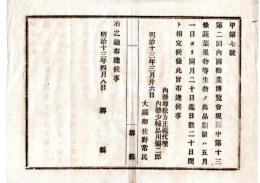 甲第七號
第二回內國勸業博覽會規則中第十三
條蔬菜果物等生物ノ出品期限ハ五月
一日ヨリ同月二十日迄日數二十日間
ト相定候條此旨布達候事
內務卿松方正義代理
明治十三年三月廿六日 內務少輔品川彌二郎
大藏卿佐野常民
右之趣布達候事
明治十三年四月八日
縣